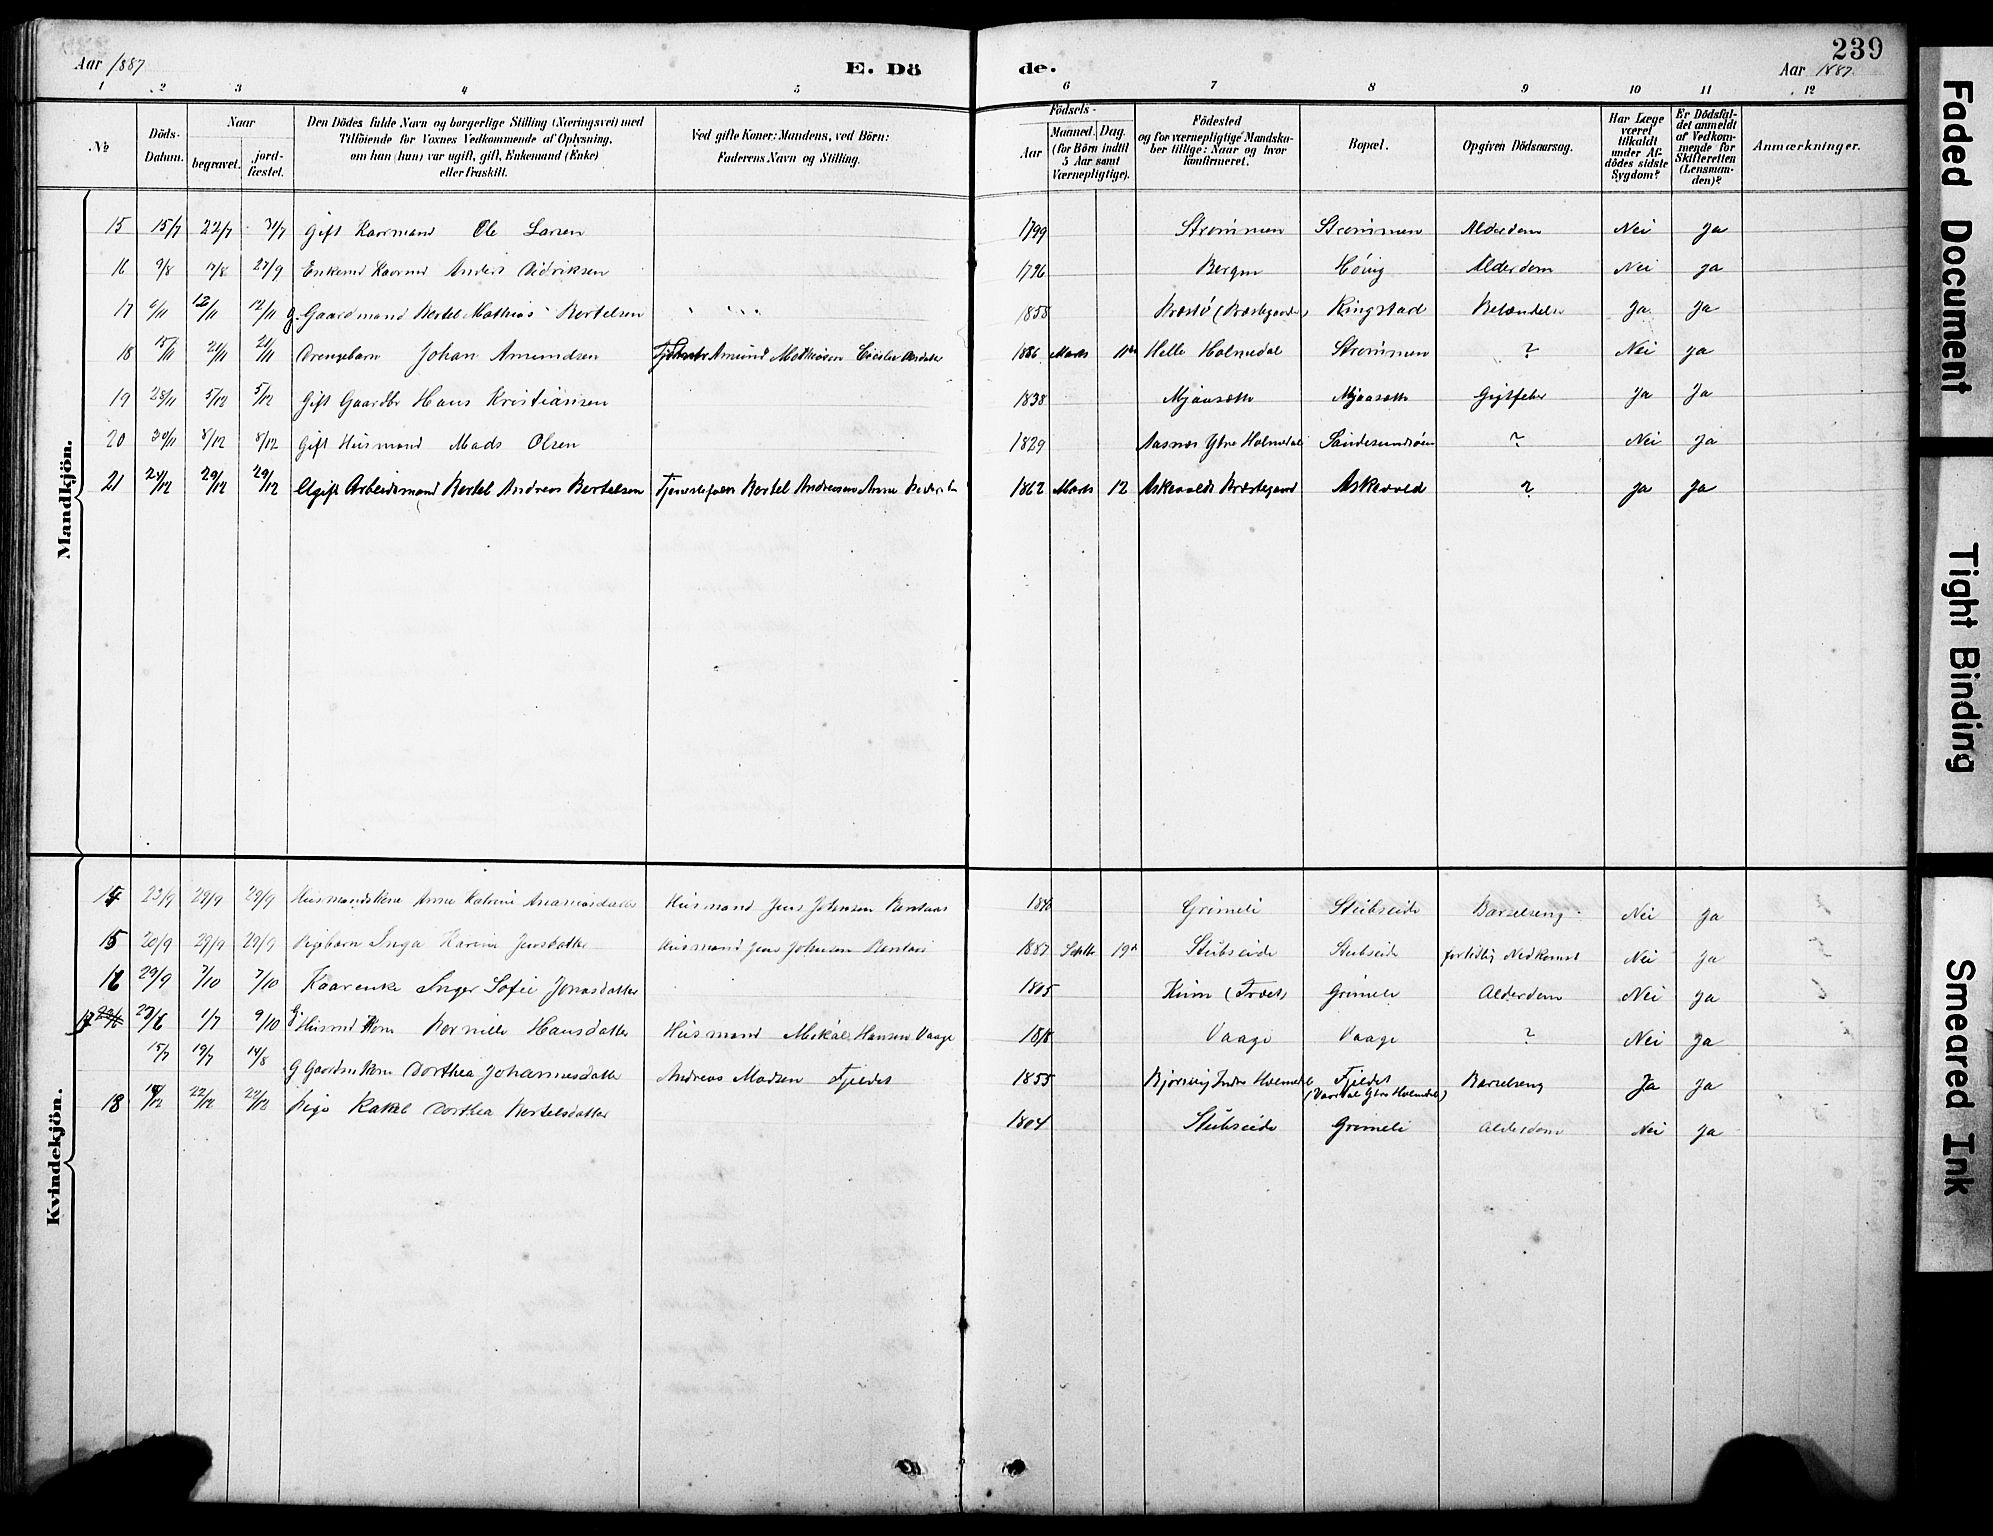 Aar 1887 E. Döde. 239
Aar 1887.
1 2 3 4 5 6 7 8 9 10 11 12
№
Döds-Datum.
Naar
begravet.
jord-fæstet.
Den Dödes fulde Navn og borgerlige Stilling (Næringsvei) med
Tilföiende for Voxnes Vedkommende af Oplysning,
om han (hun) var ugift, gift, Enkemand (Enke)
eller fraskilt.
Ved gifte Koner: Mandens, ved Börn:
Faderens Navn og Stilling.
Födsels-
Aar
Maaned. Dag.
(for Börn indtil
5 Aar samt
Værnepligtige).
Födested
og for værnepligtige Mandska-
ber tillige: Naar og hvor
konfirmeret.
Bopæl.
Opgiven Dödsaarsag.
Har Læge
været
tilkaldt
under Af-
dödes sidste
Sygdom?
Er Dödsfal-
det anmeldt
af Vedkom-
mende for
Skifteretten
(Lensman-
den)?
Anmærkninger.
Mandkjön.
15 15/7 22/7 31/7 Gift Kaarmand Ole Larsen 1799 Strømmen Strømmen Alderdom Nei Ja
16 9/8 17/8 27/9 Enkemd Kaarmd Anders Didriksen 1796 Bergen Høiig Alderdom Nei Ja
17 6/11 12/11 12/11 g. Gaardmand Bertel Mathias Bertelsen 1858 Ringstad Betændelse Ja Ja
18 15/11 21/11 21/11 Drengebarn Johan Amundsen Amund 1886 Marts Helle Holmedal Strømmen ? Nei Ja
19 28/11 5/12 5/12 Gift Gaardbr Hans Kristiansen 1838 Mjaasæth Mjaasæth Gigtfeber Ja Ja
20 30/11 8/12 8/12 Gift Husmand Mads Olsen 1829 Aasnæs Ytre Holmedal ? Nei Ja
21 24/12 29/12 29/12 Ugift Arbeidsmand Bertel Andreas Bertelsen Tjenestefolk Bertel Andreasen Anne 1862 Marts 12 Askevolds Præstegaard Askevold ? Ja Ja
Kvindekjön.
14 23/9 29/9 29/9 Husmandskone Anne Katrine Husmand Jens Johnsen Grimeli Stubseide Barselseng Nei Ja
15 20/9 29/9 29/9 Pigebarn Inga Karine Jensdatter Husmand Jens Johnsen 1887 Septbr 19 Stubseide Stubseide fortidlig Nedkomst Nei Ja
16 29/9 7/10 7/10 Kaarenke Inger Sofie Jonasdatter 1805 Grimeli Alderdom Nei Ja
17 23/6 1/7 9/10 g Husmd Kone Pernille Hansdatter Husmand Mikal Hansen Vaage 1818 Vaage Vaage ? Nei Ja
15/7 19/7 14/8 G Gaardm Kone Dorthea Johannesdatter Andreas Madsen Fjeldet 1855 Indre Holmedal Fjeldet Barselseng Ja Ja
18 22/12 22/12 Pige Rakel Dorthea Bertelsdatter 1804 Stubseide Grimeli Alderdom Nei Ja
Faded Document
Tight Binding
Smeared Ink